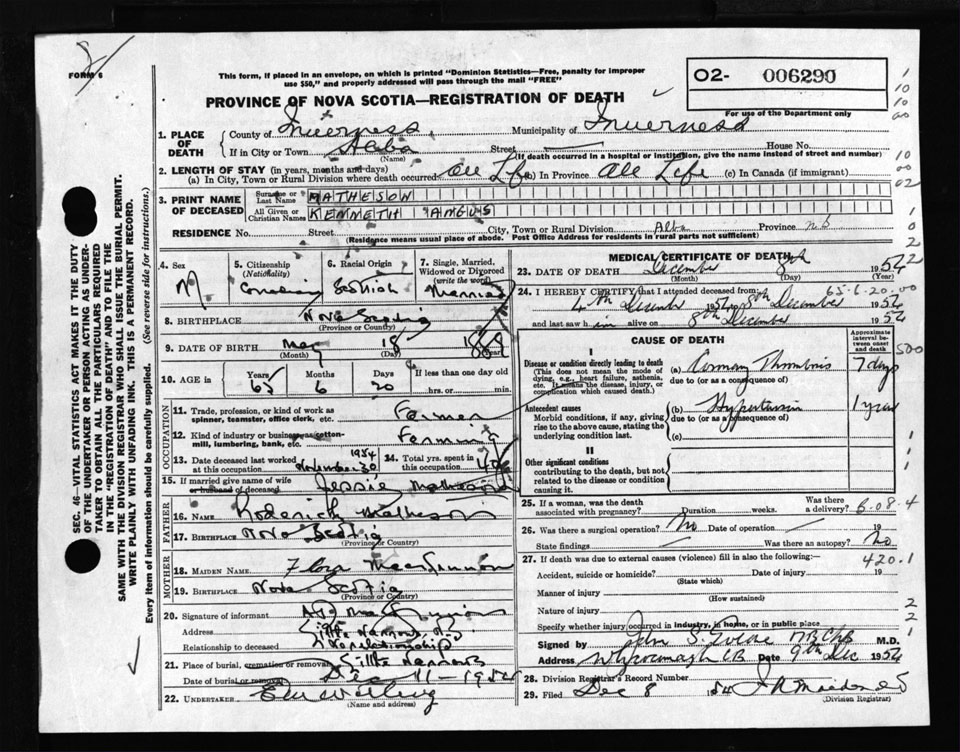 FORM 6
This form, if placed in an envelope, on which is printed "Dominion Statistics—Free, penalty for improper
use $50," and properly addressed will pass through the mail "FREE"
PROVINCE OF NOVA SCOTIA—REGISTRATION OF DEATH
O2- 006290
For use of the Department only
1. PLACE OF DEATH
County of Inverness Municipality of Inverness
If in City or Town Alba Street House No.
(Name) (If death occurred in a hospital or institution, give the name instead of street and number)
2. LENGTH OF STAY (in years, months and days)
(a) In City, Town or Rural Division where death occurred All Life (b) In Province All Life (c) In Canada (if immigrant)
3. PRINT NAME OF DECEASED
Surname or Last Name MATHESON
All Given or Christian Names KENNETH ANGUS
RESIDENCE No. Street City, Town or Rural Division Alba Province N.S
(Residence means usual place of abode. Post Office Address for residents in rural parts not sufficient)
4. Sex M
5. Citizenship (Nationality) Canadian
6. Racial Origin Scottish
7. Single, Married, Widowed or Divorced (write the word) Married
8. BIRTHPLACE Nova Scotia
(Province or Country)
9. DATE OF BIRTH May 18 1889
(Month) (Day) (Year)
10. AGE in Years 65 Months 6 Days 20 If less than one day hrs. or min.
OCCUPATION
11. Trade, profession, or kind of work as spinner, teamster, office clerk, etc. Farmer
12. Kind of industry or business, as cotton-mill, lumbering, bank, etc. Farming
13. Date deceased last worked at this occupation November 30 1954
14. Total yrs. spent in this occupation 40
15. If married give name of wife or husband of deceased Jessie Matheson
FATHER
16. NAME Roderick Matheson
17. BIRTHPLACE Nova Scotia
(Province or Country)
MOTHER
18. MAIDEN NAME Flora MacKinnon
19. BIRTHPLACE Nova Scotia
(Province or Country)
20. Signature of informant
Address Little Narrows
Relationship to deceased No relationship
21. Place of burial, cremation or removal Little Narrows
Date of burial or removal Dec 11-1954
22. UNDERTAKER
(Name and address)
MEDICAL CERTIFICATE OF DEATH
23. DATE OF DEATH December 8th 1954
(Month) (Day) (Year)
65-6-20.00
24. I HEREBY CERTIFY that I attended deceased from
4th December 1954 to 8th December 1954
and last saw him alive on 8th December 1954
CAUSE OF DEATH
Approximate interval between onset and death
I
Disease or condition directly leading to death
(This does not mean the mode of dying, e.g., heart failure, asthenia, etc. It means the disease, injury, or complication which caused death.)
(a) Coronary Thrombosis 7 days
due to (or as a consequence of)
500
Antecedent causes
Morbid conditions, if any, giving rise to the above cause, stating the underlying condition last.
(b) Hypertension 1 year
due to (or as a consequence of)
(c)
II
Other significant conditions
contributing to the death, but not related to the disease or condition causing it.
25. If a woman, was the death associated with pregnancy? Duration weeks. Was there a delivery?
6.08.4
26. Was there a surgical operation? No Date of operation 19
State findings Was there an autopsy? No
27. If death was due to external causes (violence) fill in also the following:— 420.1
Accident, suicide or homicide? Date of injury 19
(State which)
Manner of injury
(How sustained)
Nature of injury
Specify whether injury occurred in industry, in home, or in public place
Signed by John S. M.B.Ch.B M.D.
Address Whycocomagh CB Date 9th Dec 1954
28. Division Registrar's Record Number
29. Filed Dec 8 1954
(Division Registrar)
SEC. 46—VITAL STATISTICS ACT MAKES IT THE DUTY
OF THE UNDERTAKER OR PERSON ACTING AS UNDERTAKER TO OBTAIN ALL THE PARTICULARS REQUIRED
IN THE "REGISTRATION OF DEATH" AND TO FILE THE
SAME WITH THE DIVISION REGISTRAR WHO SHALL ISSUE THE BURIAL PERMIT.
WRITE PLAINLY WITH UNFADING INK. THIS IS A PERMANENT RECORD.
Every item of information should be carefully supplied. (See reverse side for instructions.)